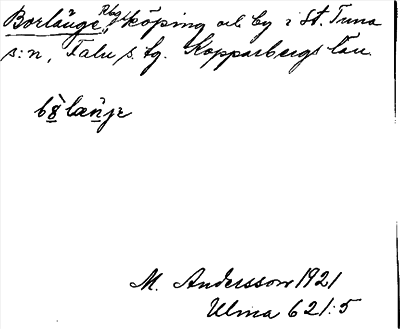 Borlänge, köping och by i St. Tuna
s:n, Falu s. tg. Kopparbergs län.
M. Andersson 1921
Ulma 621:5